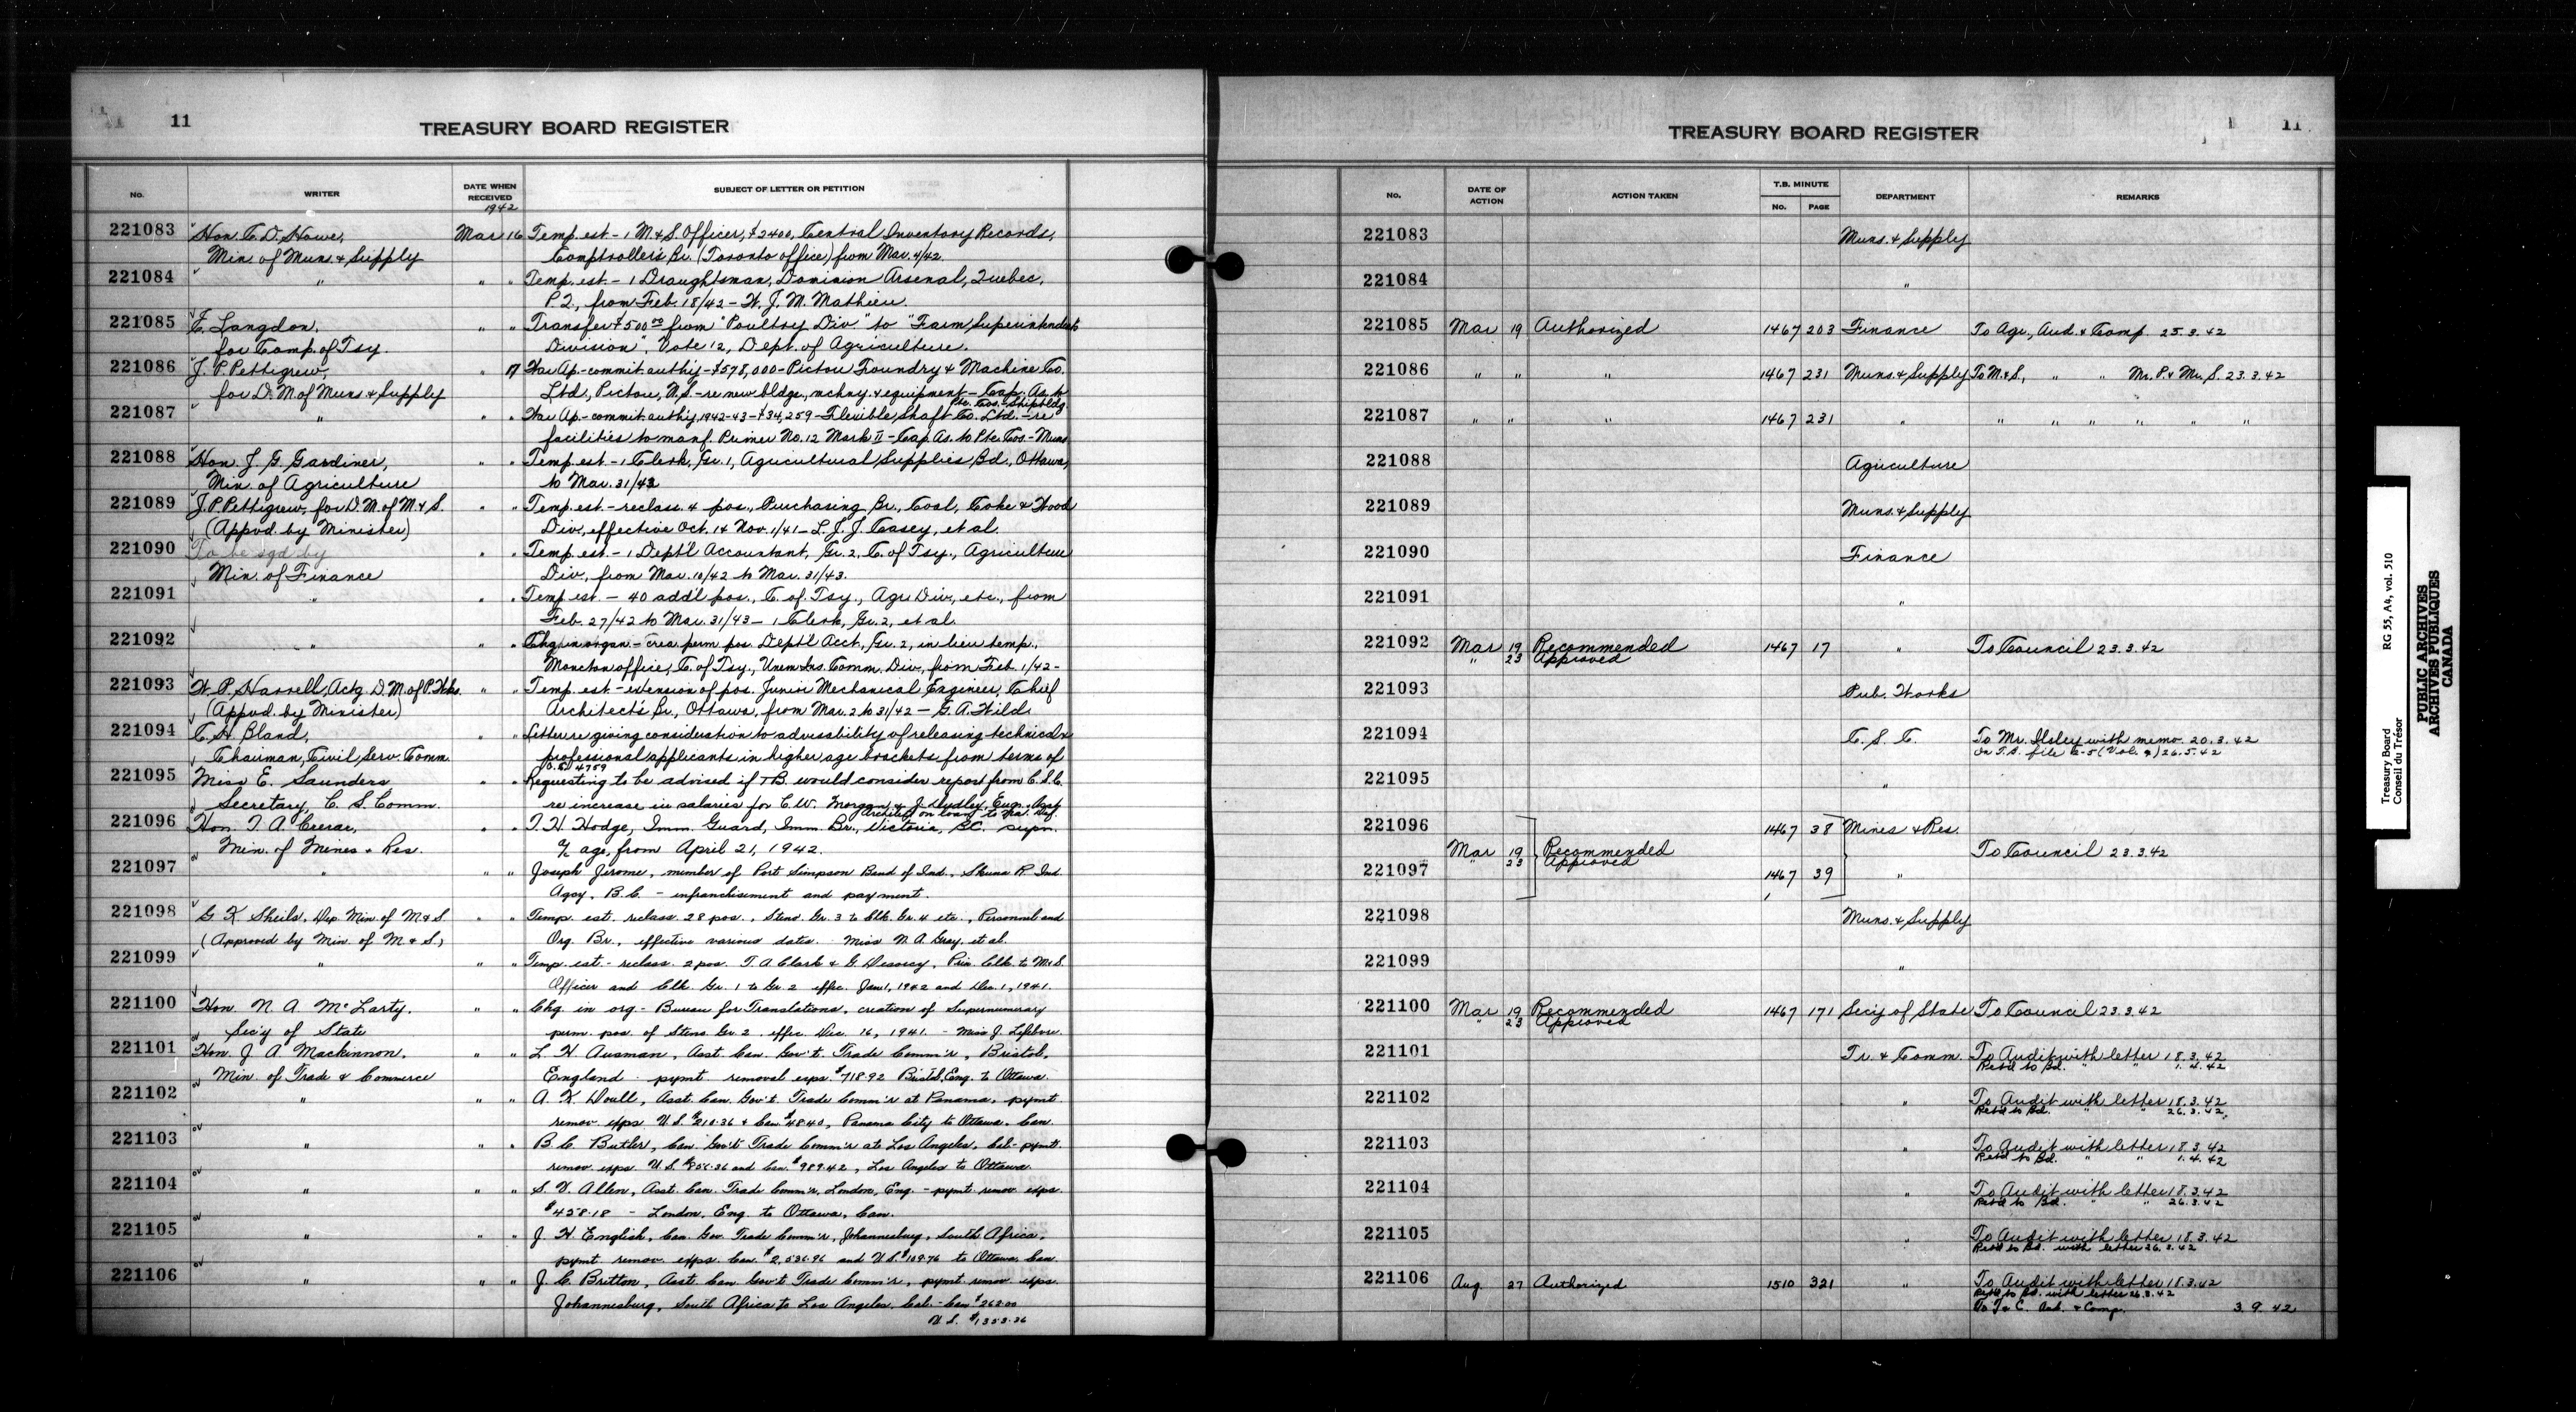 11
TREASURY BOARD REGISTER
No. WRITER DATE WHEN RECEIVED SUBJECT OF LETTER OR PETITION
1942
221083 Hon. C. D. Howe, Mar 16 Temp. est. - 1 M. & S. Officer, $2400, Central Inventory Records,
Min. of Muns. & Supply Comptroller's Br. (Toronto office) from Mar. 4/42.
221084 " " " Temp. est. - 1 Draughtsman, Dominion Arsenal, Quebec,
P.Q., from Feb. 18/42 - W. J. M. Mathieu.
221085 C. Langdon, " " Transfer $500.00 from "Poultry Div." to "Farm Superintendents
for Comp. of Tsy. Division", Vote 12, Dept. of Agriculture.
221086 J. P. Pettigrew, " 17 War Ap. - commit. authy - $578,000 - Pictou Foundry & Machine Co.
for D. M. of Muns. & Supply Ltd., Pictou, N.S. - re new bldgs., mchny. & equipment - Cap. As. to
Pte. Cos. - Shipbldg.
221087 " " " War Ap. - commit. authy 1942-43 - $34,259 - Flexible Shaft Co. Ltd. - re
facilities to manf. Primer No. 12 Mark II - Cap. As. to Pte. Cos. - Muns.
221088 Hon. J. G. Gardiner, " " Temp. est. - 1 Clerk, Gr. 1, Agricultural Supplies Bd., Ottawa,
Min. of Agriculture to Mar. 31/43
221089 J. P. Pettigrew, for D. M. of M. & S. " " Temp. est. - reclass. 4 pos., Purchasing Br., Coal, Coke & Wood
(Appvd. by Minister) Div., effective Oct. 1 & Nov. 1/41 - L. J. J. Casey, et al.
221090 To be sgd by " " Temp. est. - 1 Dept'l Accountant, Gr. 2, C. of Tsy., Agriculture
Min. of Finance Div., from Mar. 10/42 to Mar. 31/43.
221091 " " " Temp. est. - 40 add'l pos., C. of Tsy., Agri Div., etc., from
Feb. 27/42 to Mar. 31/43 - 1 Clerk, Gr. 2, et al.
221092 " " " Chg. in organ. - crea. perm. pos. Dept'l Acct., Gr. 2, in lieu temp.,
Moncton office, C. of Tsy., Unem. Ins. Comm. Div., from Feb. 1/42 -
221093 W. P. Harrell, Actg. D. M. of P. Wks. " " Temp. est. - extension of pos. Junior Mechanical Engineer, Chief
(Appvd. by Minister) Architect's Br., Ottawa, from Mar. 2 to 31/42 - G. A. Wild.
221094 C. H. Bland, " " Letter re giving consideration to advisability of releasing technical &
Chairman, Civil Serv. Comm. professional applicants in higher age brackets from terms of
P.C. 4759
221095 Miss E. Saunders " " Requesting to be advised if TB would consider report from C.S.C.
Secretary, C. S. Comm. re increase in salaries for C. W. Morgan & J. Dudley, Eng. & Asst
Architect on loan to Na. Def.
221096 Hon. T. A. Crerar, " " T. H. Hodge, Imm. Guard, Imm. Br., Victoria, B.C. supn.
Min. of Mines & Res. a/c age, from April 21, 1942.
221097 " " " Joseph Jerome, member of Port Simpson Band of Ind., Skeena R. Ind.
Agcy, B.C. - infranchisement and payment.
221098 G. K. Sheils, Dep. Min. of M & S. " " Temp. est. reclass. 28 pos., Steno. Gr. 3 to Clk. Gr. 4 etc., Personnel and
(Approved by Min. of M & S.) Org. Br., effective various dates. Miss N. A. Gray, et al.
221099 " " " Temp. est. - reclass. 2 pos. T. A. Clark & G. Prin. Clk. to M & S.
Officer and Clk. Gr. 1 to Gr. 2 effec. Jan 1, 1942 and Dec. 1, 1941.
221100 Hon. N. A. McLarty, " " Chg. in org - Bureau for Translations, creation of Supernumerary
Sec'y of State perm. pos. of Steno Gr. 2, effec. Dec. 16, 1941. - Miss J. Lefebvre.
221101 Hon. J. A. Mackinnon, " " L. H. Ausman, Asst. Can. Gov't. Trade Comm'r, Bristol,
Min. of Trade & Commerce England - pymt removal exps. $718.92 Bristol, Eng. to Ottawa.
221102 " " " A. K. Doull, Asst. Can. Gov't. Trade Comm'r at Panama, pymt.
remov. exps. U.S. $210.36 & Can. $48.40, Panama City to Ottawa, Can.
221103 " " " B. C. Butler, Can. Gov't Trade Comm'r at Los Angeles, Cal. - pymt.
remov. exps. U.S. $856.36 and Can. $989.42, Los Angeles to Ottawa.
221104 " " " S. V. Allen, Asst. Can. Trade Comm'r, London, Eng. - pymt. remov. exps.
$458.18 - London, Eng. to Ottawa, Can.
221105 " " " J. H. English, Can. Gov. Trade Comm'r, Johannesburg, South Africa,
pymt remov. exps. Can. $2,536.96 and U.S. $109.76 to Ottawa, Can.
221106 " " " J. C. Britton, Asst. Can. Gov't Trade Comm'r, pymt. remov. exps.
Johannesburg, South Africa to Los Angeles, Cal. - Can $262.00
U.S. $1353.36
TREASURY BOARD REGISTER
11
No. DATE OF ACTION ACTION TAKEN T.B. MINUTE No. PAGE DEPARTMENT REMARKS
221083 Muns. & Supply
221084 "
221085 Mar 19 Authorized 1467 203 Finance To Agr., Aud. & Comp. 25.3.42
221086 " " " 1467 231 Muns. & Supply To M. & S., " " Mr. P. & Mr. S. 23.3.42
221087 " " " 1467 231 " " " " " "
221088 Agriculture
221089 Muns. & Supply
221090 Finance
221091 "
221092 Mar 19 Recommended 1467 17 " To Council 23.3.42
" 23 Approved
221093 Pub. Works
221094 C. S. C. To Mr. Ilsley with memo. 20.3.42
On T.B. file C-5 (Vol. 2) 26.5.42
221095 "
221096 1467 38 Mines & Res.
Mar 19 Recommended To Council 23.3.42
" 23 Approved
221097 1467 39 "
221098 Muns. & Supply
221099 "
221100 Mar 19 Recommended 1467 171 Sec'y of State To Council 23.3.42
" 23 Approved
221101 Tr. & Comm. To Audit with letter 18.3.42
Retd to Bd. " " 1.4.42
221102 " To Audit with letter 18.3.42
Retd to Bd. " " 26.3.42
221103 " To Audit with letter 18.3.42
Retd to Bd. " " 1.4.42
221104 " To Audit with letter 18.3.42
Retd to Bd. " " 26.3.42
221105 " To Audit with letter 18.3.42
Retd to Bd. with letter 26.3.42
221106 Aug. 27 Authorized 1510 321 " To Audit with letter 18.3.42
Retd to Bd. with letter 26.3.42
To T & C. Aud. & Comp. 3.9.42
Treasury Board RG 55, A4, vol. 510
Conseil du Trésor
PUBLIC ARCHIVES
ARCHIVES PUBLIQUES
CANADA